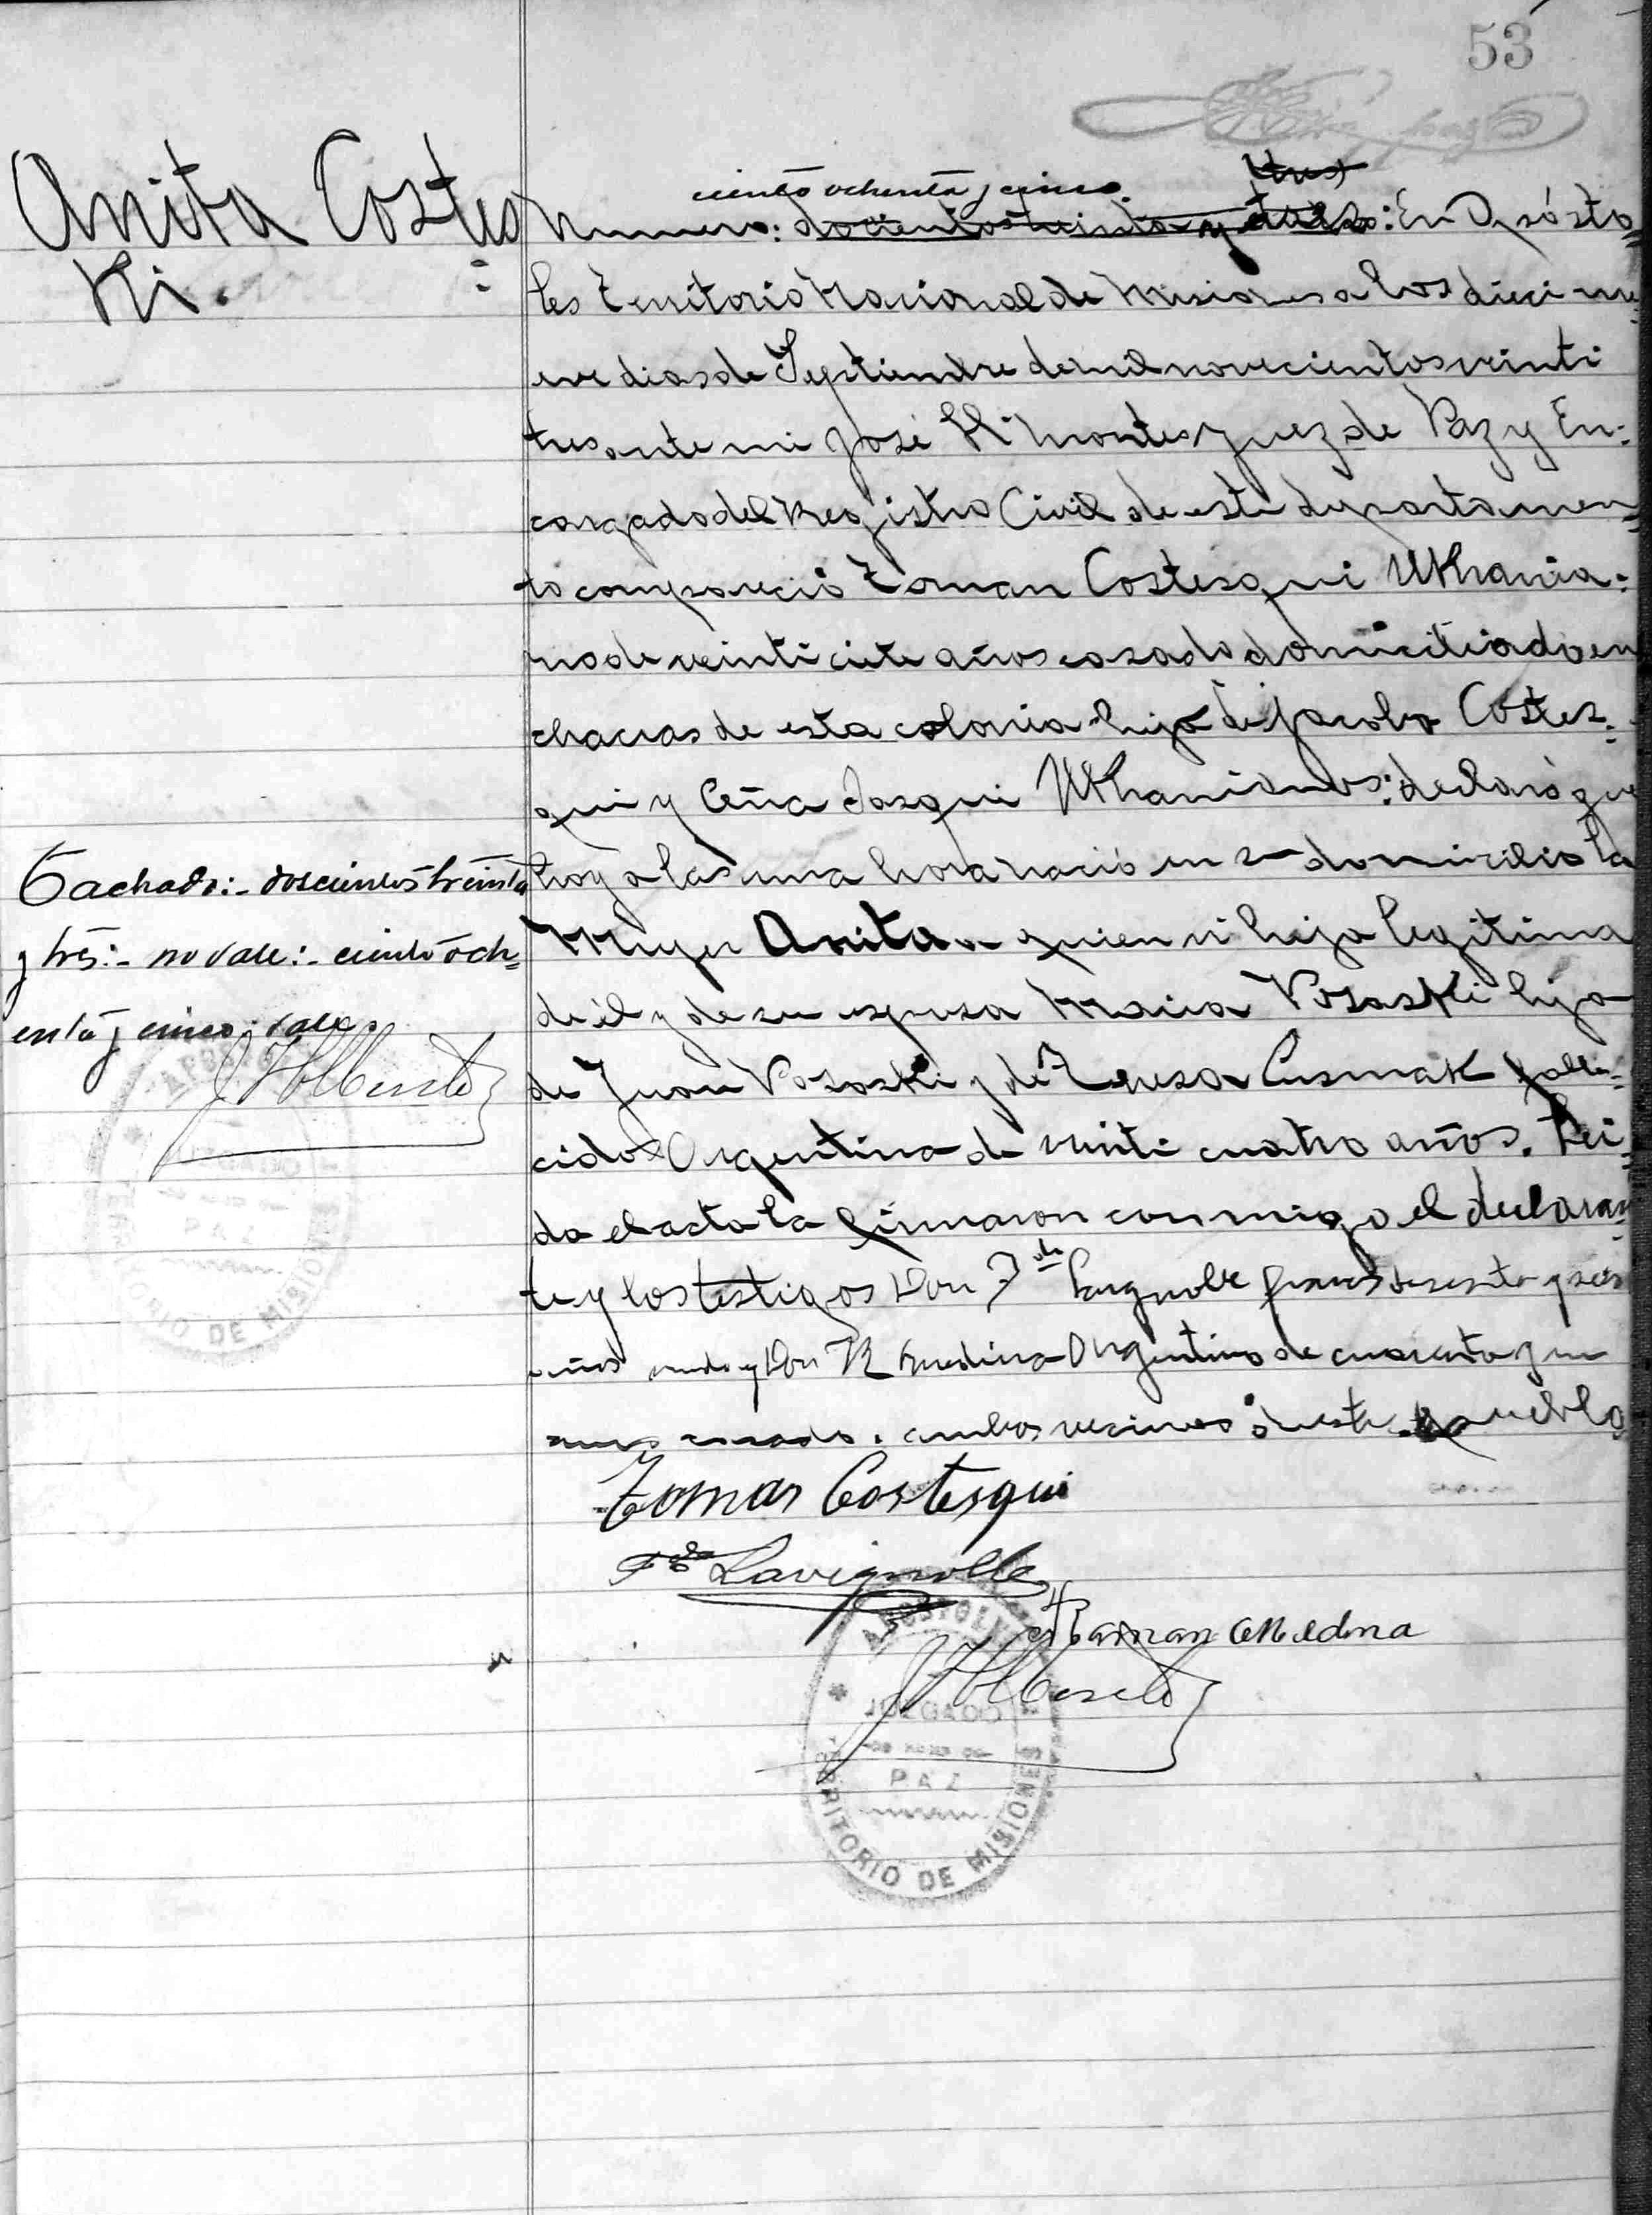 53
Anita Costes
ki.
ciento ochenta y cinco. tres
Numero: docientos treinta y : En Apósto=
les Territorio Nacional de Misiones a los dieci nu=
eve dias de Septiembre de mil novecientos veinti
tres ante mi José H Montes Juez de Paz y En=
cargado del Registro Civil de este departamen=
to compareció Toman Costesqui Ukrania=
no de veinti ciete años casado domiciliado en
chacras de esta colonia hijo de Jacobo Costes=
qui y Ceña Josqui Ukranianos: declaró que
hoy a las una hora nació en su domicilio la
Mujer Anita a quien vi hija legitima
de él y de su esposa Maria Posaski hija
de Juan Posaski y de Teresa Cusmak falle=
cidos Argentina de veinti cuatro años. Lei=
da el acta la firmaron conmigo el declaran=
te y los testigos Don Lavignolle frances de sesenta y seis
años viudo y Don R Medina Argentino de cuarenta y un
años casado. ambos vecinos de este pueblo
Tachado:- doscientos treinta
y tres:- no vale:- ciento och=
enta y cinco: vale.
APOSTOLES
JUZGADO
DE PAZ
TERRITORIO DE MISIONES
Toman Costesqui
Lavignolle
Raman Medina
APOSTOLES
JUZGADO
PAZ
TERRITORIO DE MISIONES